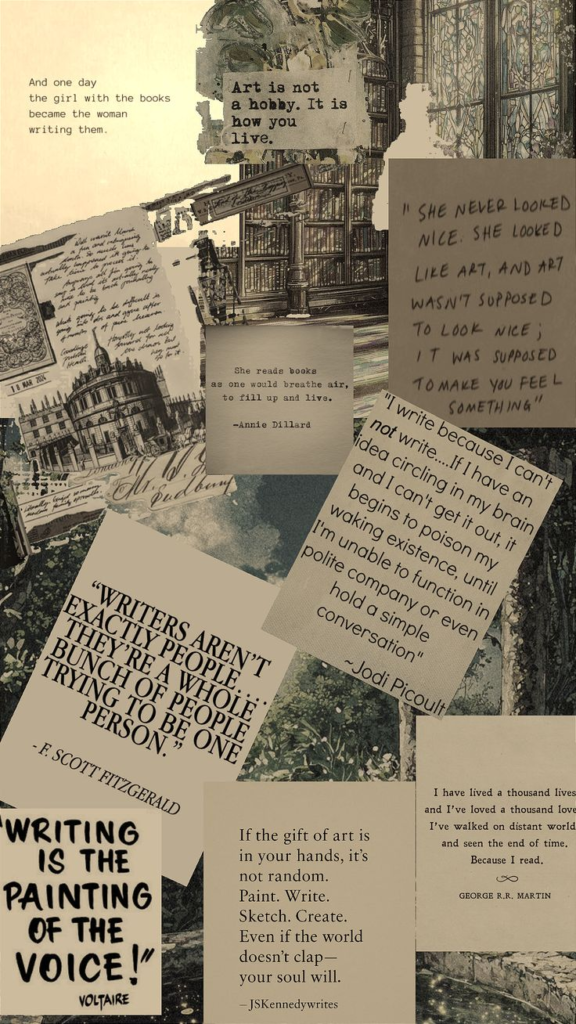 And one day
the girl with the books
became the woman
writing them.
Art is not
a hobby. It is
how you
live.
" SHE NEVER LOOKED
NICE. SHE LOOKED
LIKE ART, AND ART
WASN'T SUPPOSED
TO LOOK NICE;
IT WAS SUPPOSED
TO MAKE YOU FEEL
SOMETHING"
She reads books
as one would breathe air,
to fill up and live.
-Annie Dillard
"I write because I can't
not write....If I have an
idea circling in my brain
and I can't get it out, it
begins to poison my
waking existence, until
I'm unable to function in
polite company or even
hold a simple
conversation"
~Jodi Picoult
“WRITERS AREN’T
EXACTLY PEOPLE....
THEY’RE A WHOLE
BUNCH OF PEOPLE
TRYING TO BE ONE
PERSON.”
- F. SCOTT FITZGERALD
I have lived a thousand lives
and I’ve loved a thousand love
I’ve walked on distant world
and seen the end of time.
Because I read.
GEORGE R.R. MARTIN
"WRITING
IS THE
PAINTING
OF THE
VOICE!"
VOLTAIRE
If the gift of art is
in your hands, it’s
not random.
Paint. Write.
Sketch. Create.
Even if the world
doesn’t clap—
your soul will.
– JSKennedywrites